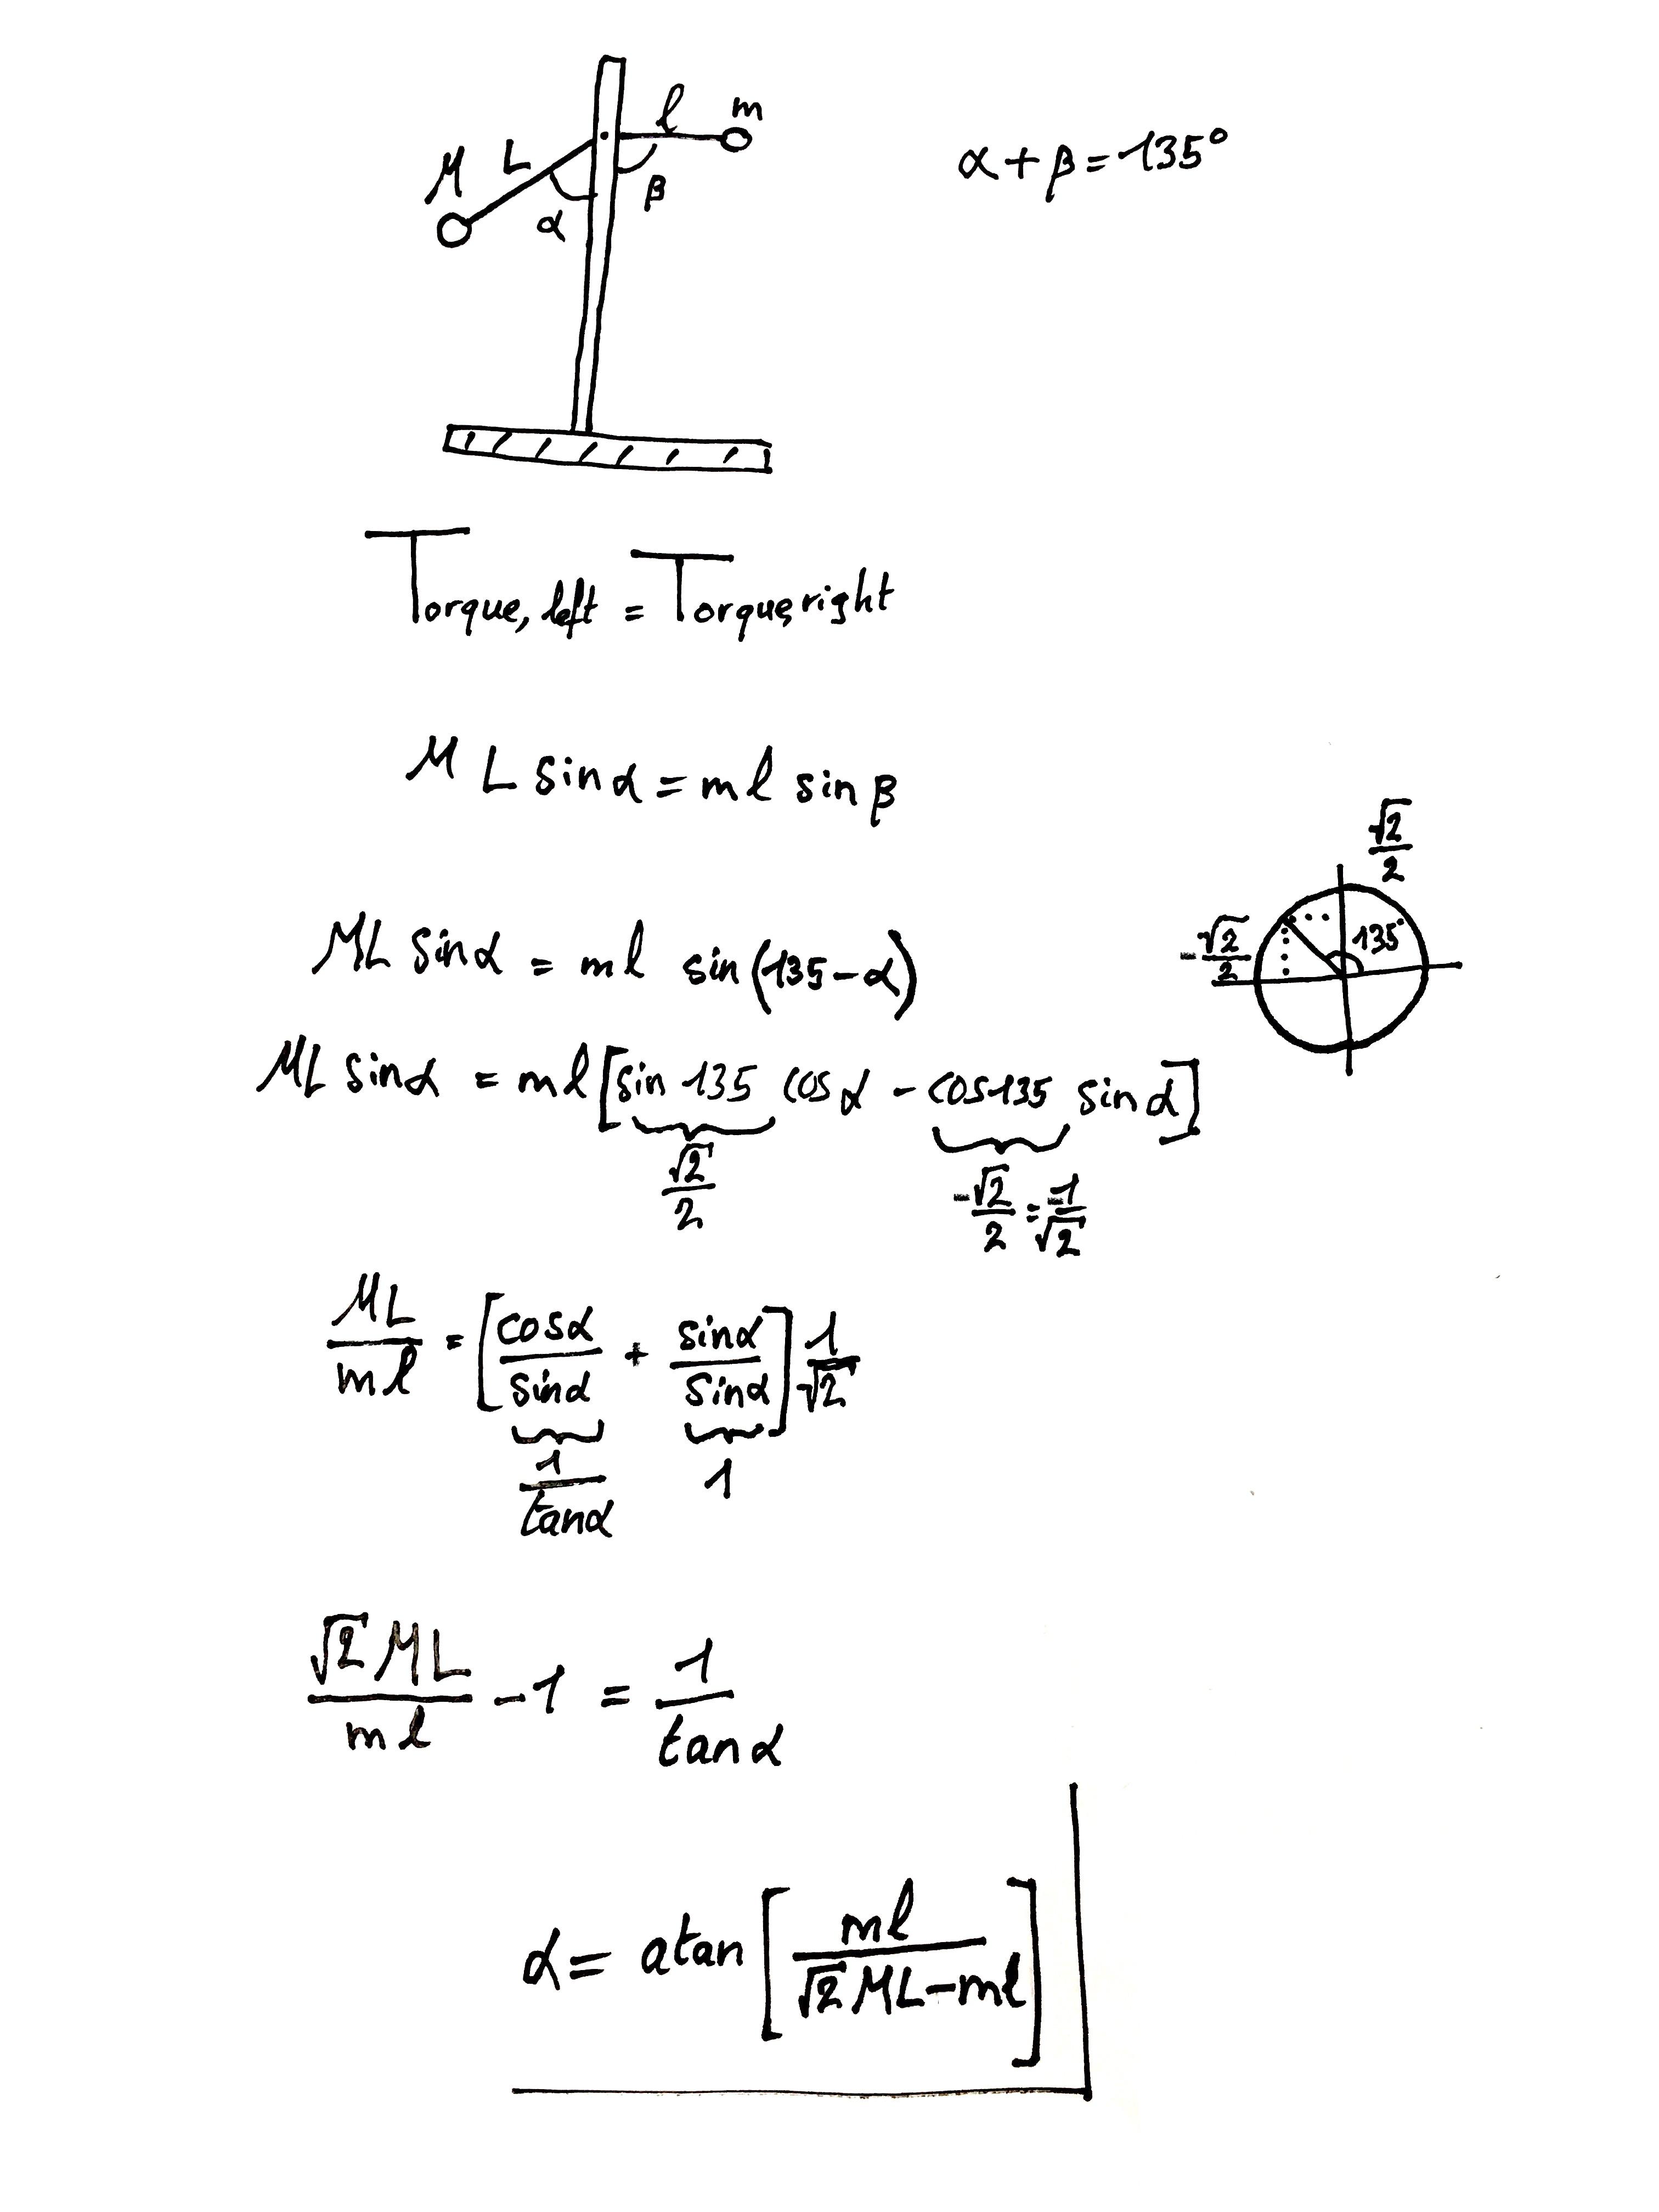 l m
M L
α β
α + β = 135°
Torque, left = Torque, right
M L sin α = m l sin β
√2/2
-√2/2 135°
ML sin α = m l sin (135 - α)
ML sin α = m l [sin 135 cos α - cos 135 sin α]
√2/2 -√2/2 = -1/√2
ML/ml = [cos α/sin α + sin α/sin α] 1/√2
1/tan α 1
√2 ML/ml - 1 = 1/tan α
α = atan [ml/(√2 ML - ml)]